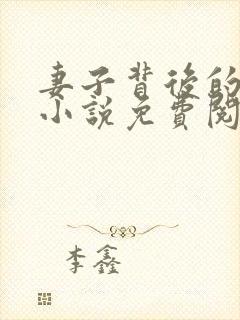 妻子背後的
小説免費閱
李鑫